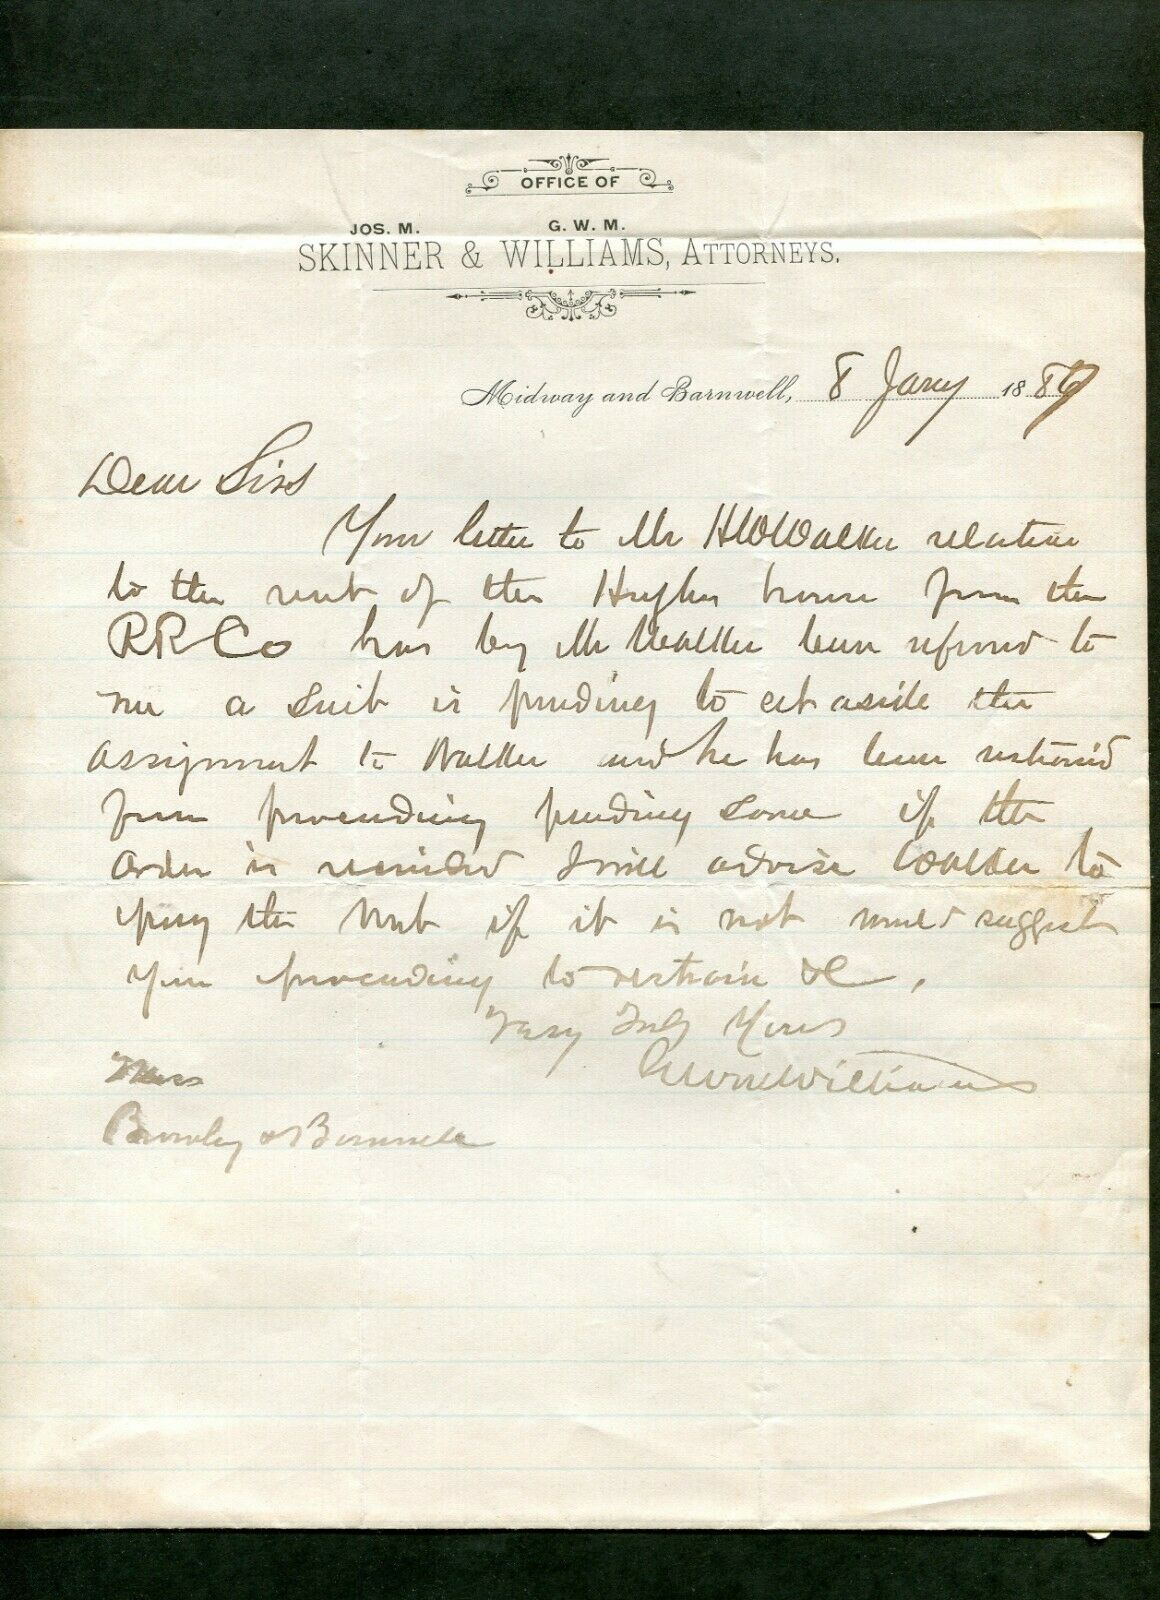 OFFICE OF
JOS. M. G. W. M.
SKINNER & WILLIAMS, ATTORNEYS.
Midway and Barnwell, 8 Jany 1887
Dear Sirs
Your letter to Mr H W Walker relative
to the rent of the Hughes house from the
RR Co has by Mr Walker been referred to
me a suit is pending to set aside the
assignment to Walker and he has been restraind
from proceeding pending same if the
order is rescinded I will advise Walker to
pay the rent if it is not would suggest
your proceeding to restrain &C.
Very Truly Yours
G W M Williams
Mess
& Bonnell